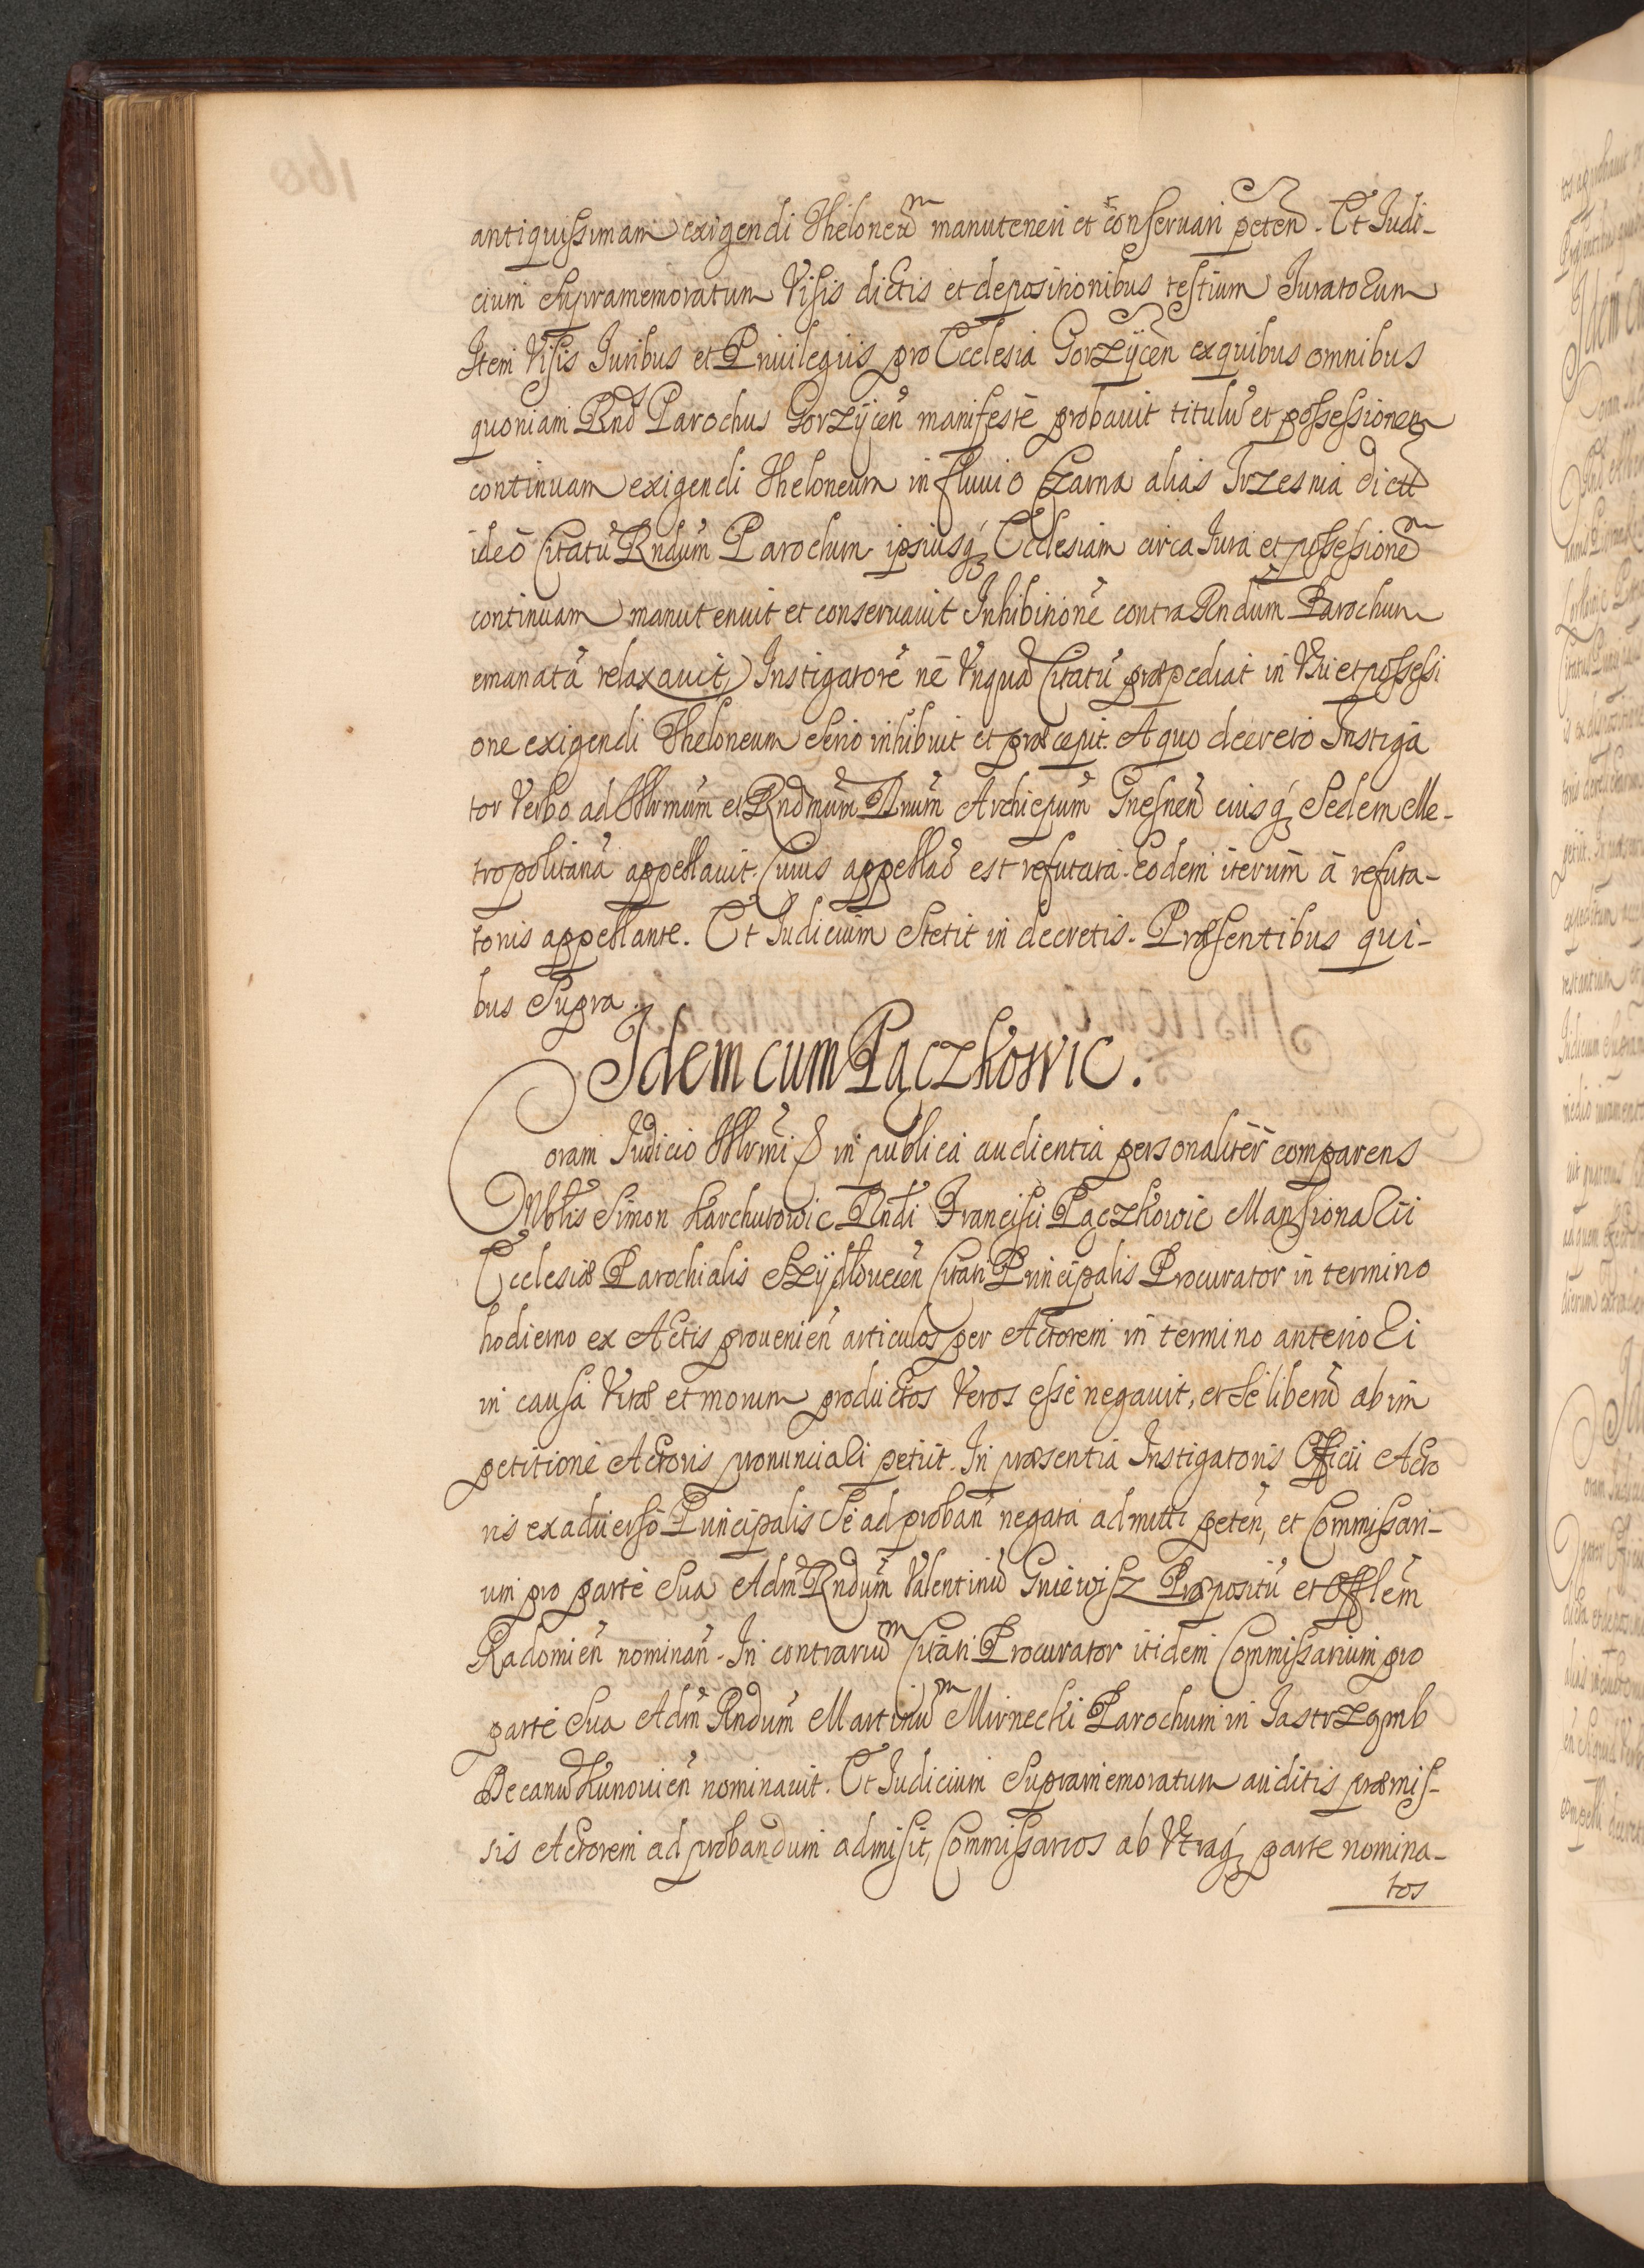 antiquissimam exigendi Theloneũ manuteneri et conservari peteñ. Et Judi-
cium Supramemoratum Visis dictis et depositionibus testium Juratorum
Item Visis Juribus et Privilegiis pro Ecclesia Gorzÿceñ ex quibus omnibus
quoniam Rnd Parochus Gorzÿceñ manifestè probavit titulũ et possessionem
continuam exigendi Theloneum in fluvio Czarna alias Trzesnia dict
ideò Citatũ Rndũm Parochum ipsiusq; Ecclesiam circa Jura et possessionẽ
continuam manutenuit et conservavit Inhibitionẽ contra Rndũm Parochum
emanatã relaxavit, Instigatorẽ nè Unquã Citatũ præpediat in Usu et possessi
one exigendi Theloneum Serio inhibuit et præcepit. A quo decreto Instiga
tor Verbo ad Illrmũm et Rndmũm Dnũm Archiepũm Gnesneñ eiusq; Sedem Me-
tropolitanã appellavit. Cuius appellaõ est refutata. Eodem iterum à refuta-
tonis appellante. Et Judicium Stetit in decretis. Præsentibus qui-
bus Supra.
Idem cum Pączkowic.
Coram Judicio Illrmi in publica audientia personalitèr comparens
Nblis Simon Karchutowic Rndi Francisci Pączkowic Mansionarii
Ecclesiæ Parochialis Szÿdloveceñ Citati Principalis Procurator in termino
hodierno ex Actis provenieñ articulos per Actorem in termino anteriori
in causa Vitæ et morum productos Veros esse negavit, et Se liberũ ab im
petitione Actoris pronunciari petiit. In præsentia Instigatoris Officii Acto
ris ex adverso Principalis Se ad probañ negata admitti peteñ, et Commissari-
um pro parte Sua Adm Rndũm Valentinũ Gniewisz Præpositũ et Offlẽm
Radomieñ nominañ. In contrariũ Citati Procurator itidem Commissarium pro
parte Sua Adm Rndũm Martinũ Mirnecki Parochum in Jastrząmb
Decanũ Kunovieñ nominavit. Et Judicium Supramemoratum auditis præmis-
sis Actorem ad probandum admisit, Commissarios ab Utraq; parte nomina-
tos